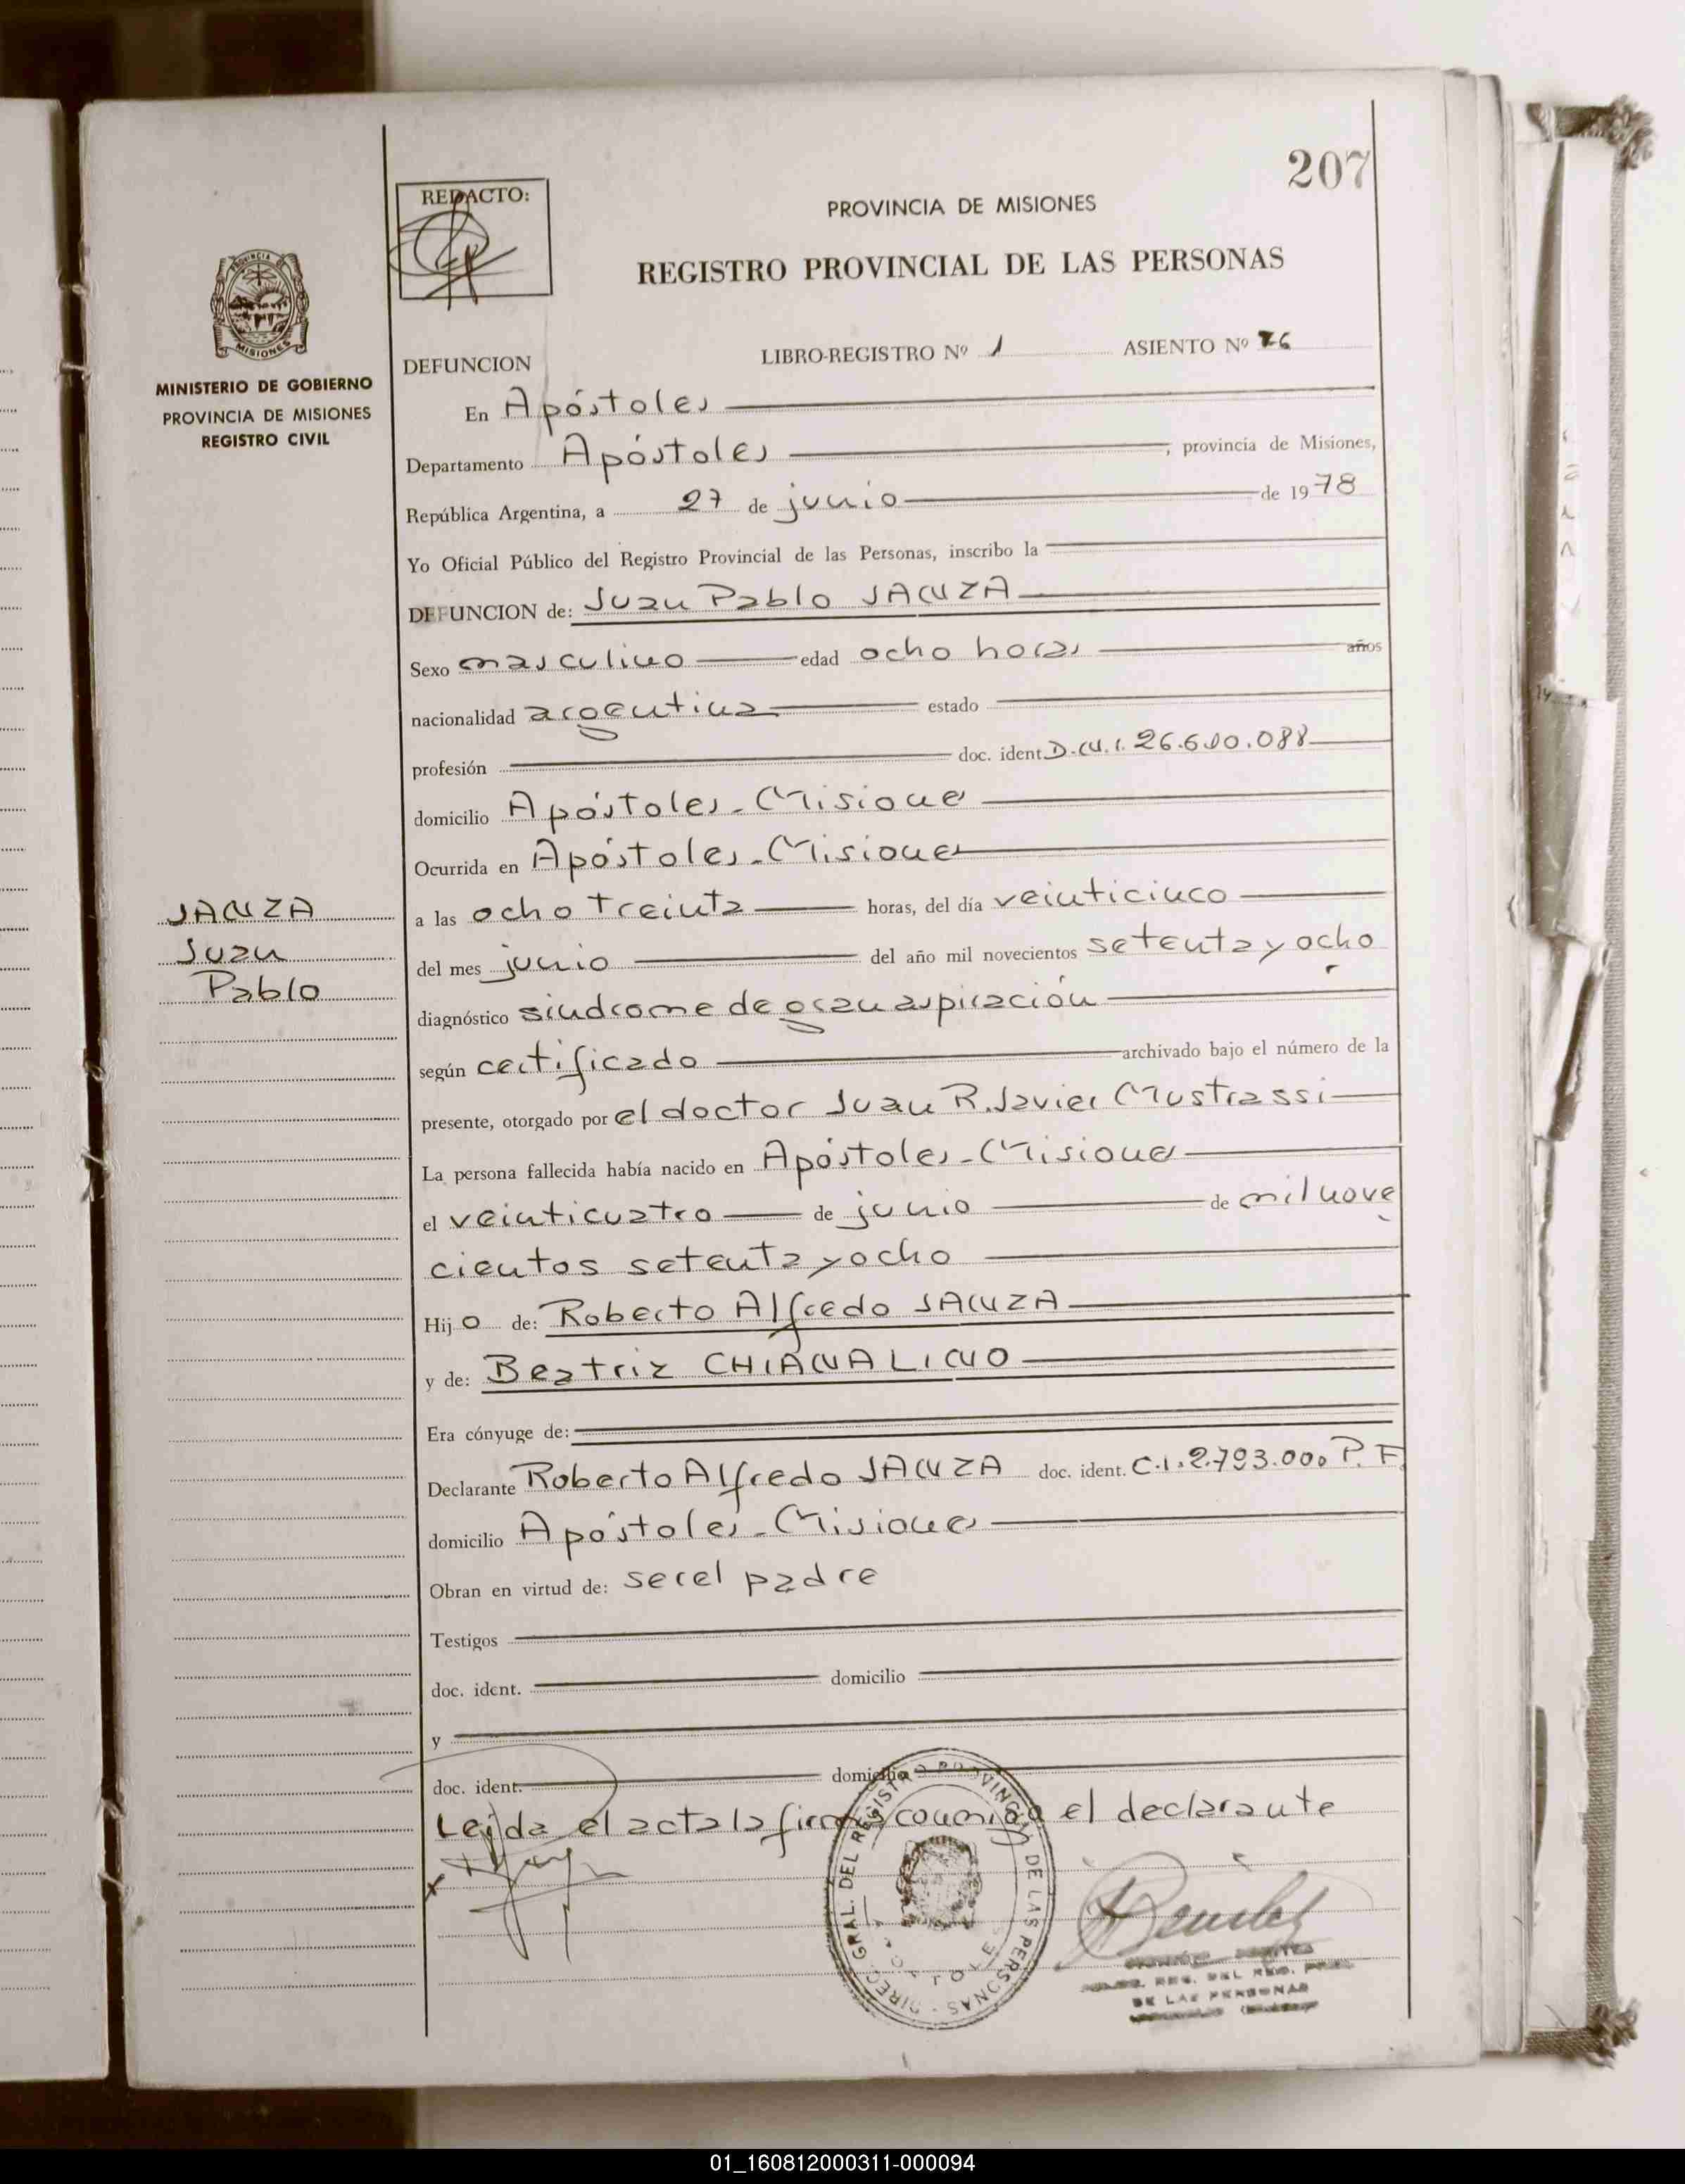 207
REDACTO:
PROVINCIA DE MISIONES
REGISTRO PROVINCIAL DE LAS PERSONAS
PROVINCIA DE
MISIONES
MINISTERIO DE GOBIERNO
PROVINCIA DE MISIONES
REGISTRO CIVIL
DEFUNCION LIBRO-REGISTRO Nº 1 ASIENTO Nº 76
En Apóstoles
Departamento Apóstoles, provincia de Misiones,
República Argentina, a 27 de junio de 1978
Yo Oficial Público del Registro Provincial de las Personas, inscribo la
DEFUNCION de: Juan Pablo JANZA
Sexo masculino edad ocho horas años
nacionalidad argentina estado
profesión doc. ident. D.N.I. 26.600.088
domicilio Apóstoles-Misiones
Ocurrida en Apóstoles-Misiones
JANZA
Juan
Pablo
a las ocho treinta horas, del día veinticinco
del mes junio del año mil novecientos setenta y ocho
diagnóstico síndrome de gran aspiración
según certificado archivado bajo el número de la
presente, otorgado por el doctor Juan R. Javier Mustrassi
La persona fallecida había nacido en Apóstoles-Misiones
el veinticuatro de junio de mil nove
cientos setenta y ocho
Hijo de: Roberto Alfredo JANZA
y de: Beatriz CHIANALINO
Era cónyuge de:
Declarante Roberto Alfredo JANZA doc. ident. C.I. 2.793.000 P.F.
domicilio Apóstoles-Misiones
Obran en virtud de: ser el padre
Testigos
doc. ident. domicilio
y
doc. ident. domicilio
Leída el acta la firma conmigo el declarante
DIREC. GRAL. DEL REGISTRO PROVINCIAL DE LAS PERSONAS
DE LAS PERSONAS
01_160812000311-000094